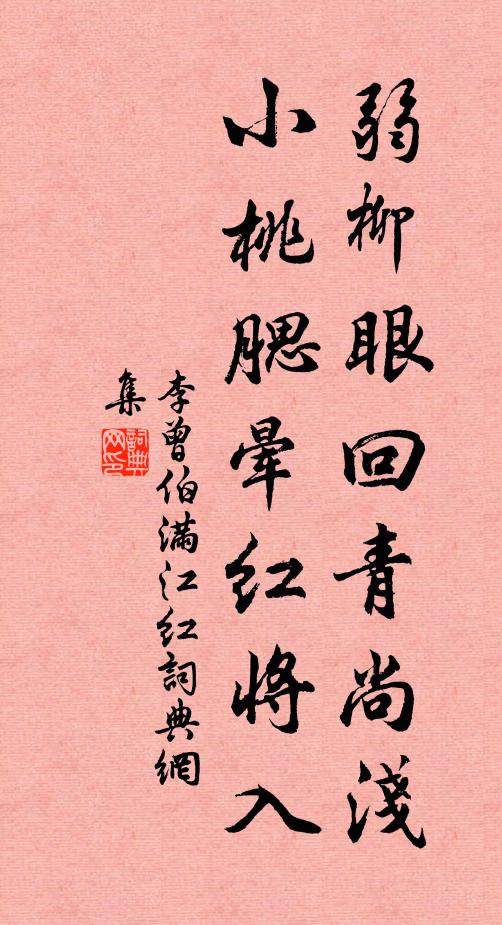 弱柳眼回青尚淺
小桃腮暈紅將入
李曾伯滿江紅詞典網
集
詞典網印